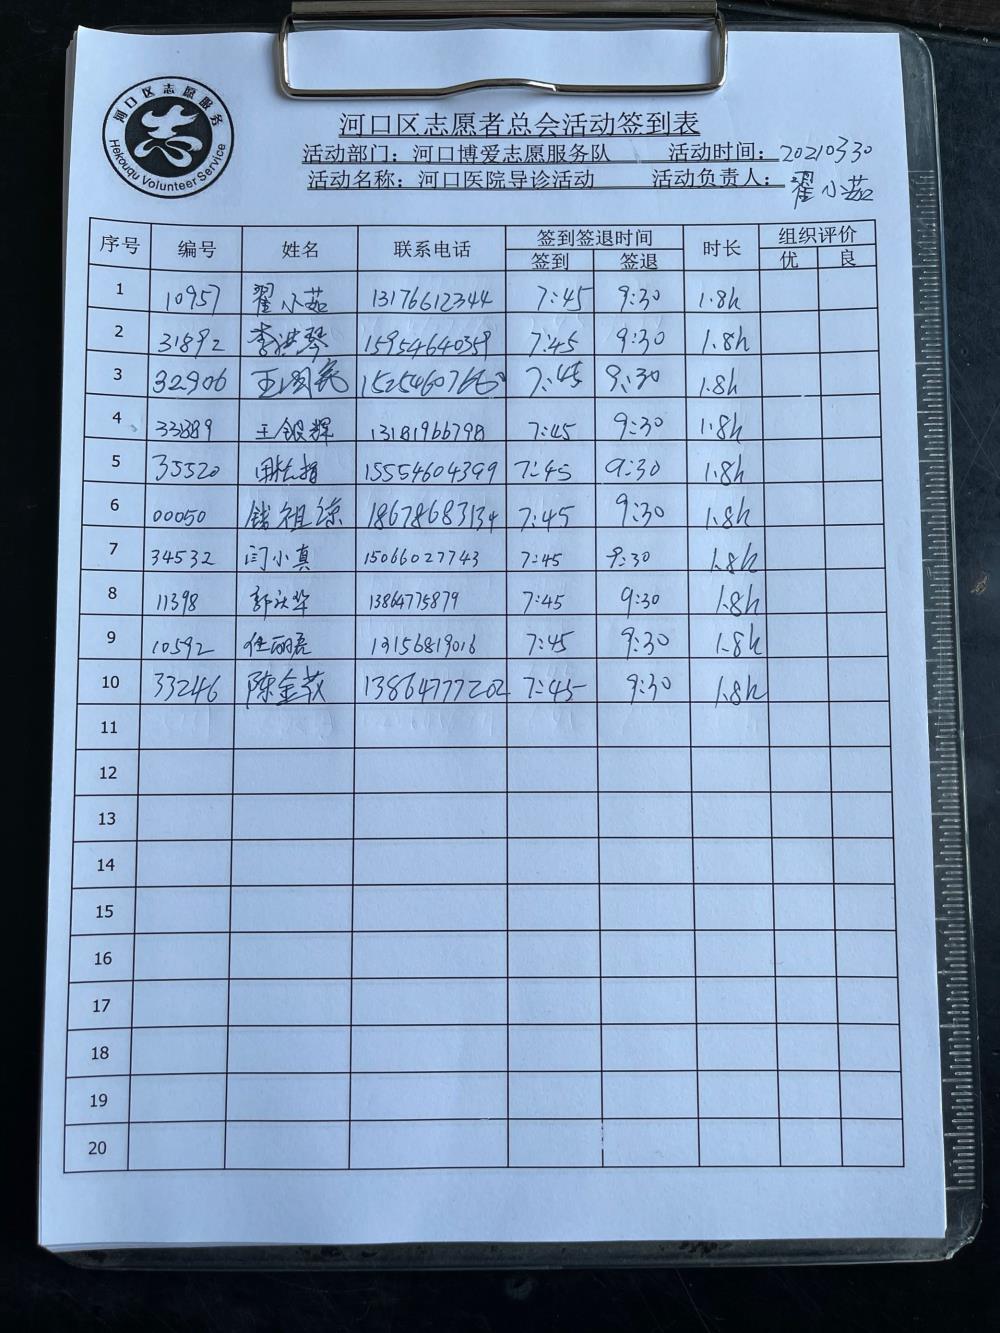 河口区志愿服务
Hekouqu Volunteer Service
河口区志愿者总会活动签到表
活动部门：河口博爱志愿服务队 活动时间：20210330
活动名称：河口医院导诊活动 活动负责人：翟小茹
序号 编号 姓名 联系电话 签到签退时间 时长 组织评价
签到 签退 优 良
1 10957 翟小茹 13176612344 7:45 9:30 1.8h
2 31892 李洪琴 15954640359 7:45 9:30 1.8h
3 32906 王 7:45 9:30 1.8h
4 33889 王银辉 13181966798 7:45 9:30 1.8h
5 35520 15554604399 7:45 9:30 1.8h
6 00050 钱祖 18678683134 7:45 9:30 1.8h
7 34532 闫小真 15066027743 7:45 9:30 1.8h
8 11398 郭 华 13864775879 7:45 9:30 1.8h
9 10592 任丽磊 13156819016 7:45 9:30 1.8h
10 33246 陈金 13864777202 7:45 9:30 1.8h
11
12
13
14
15
16
17
18
19
20